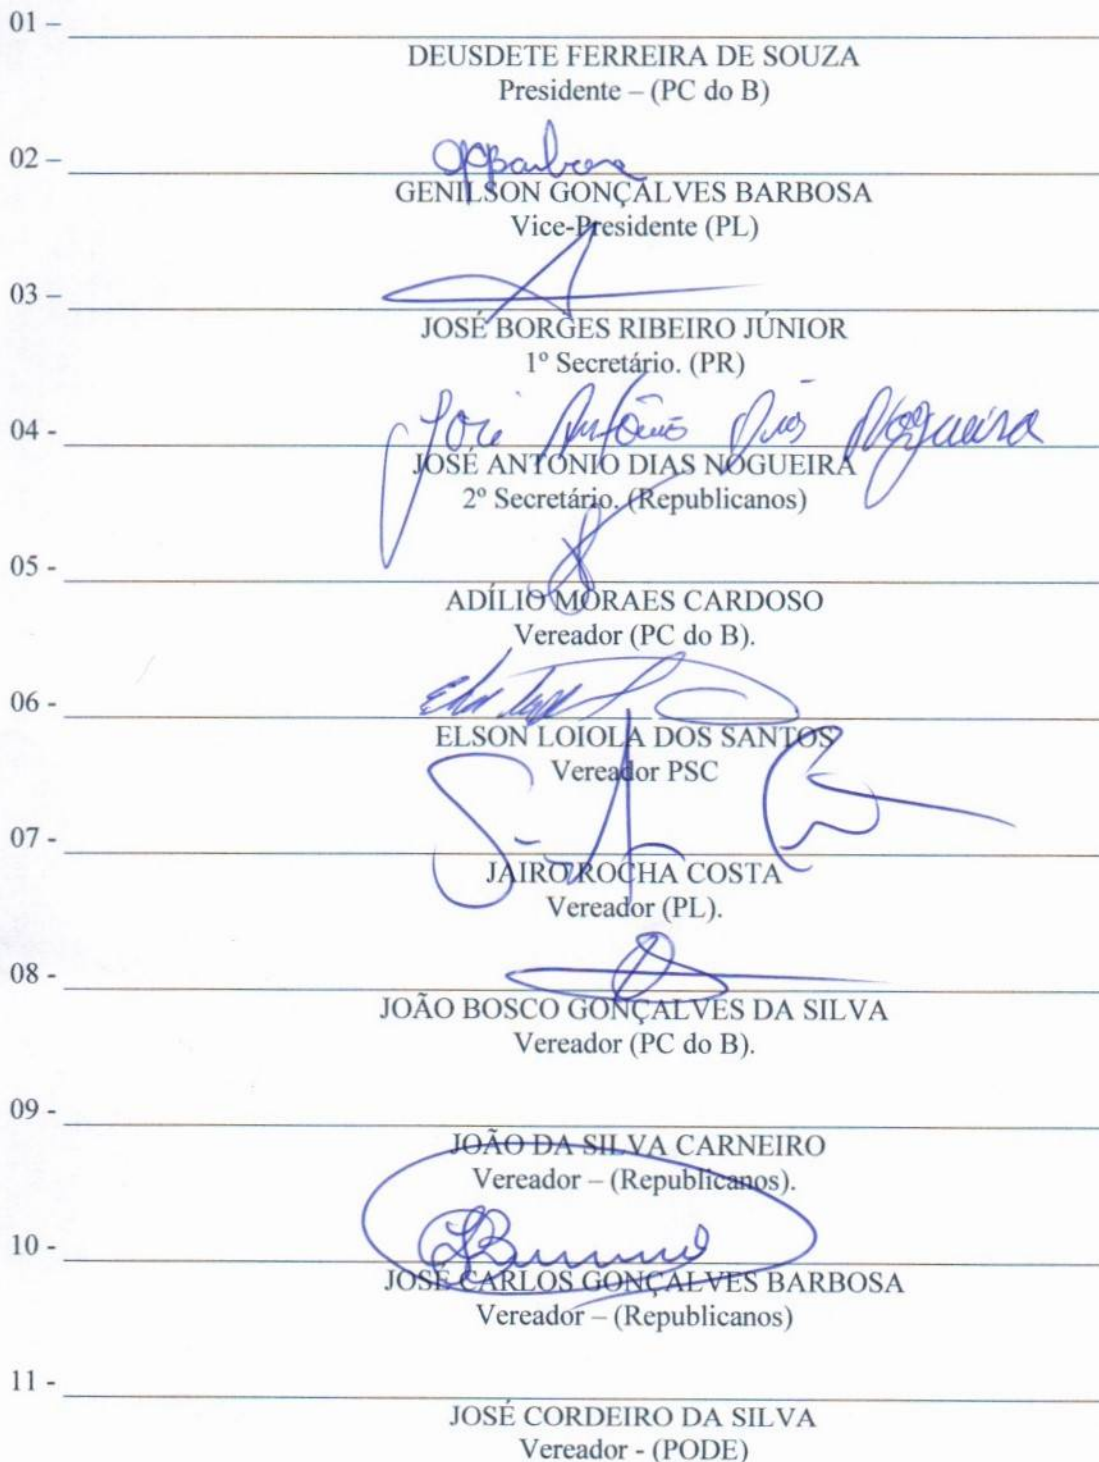 01 –
DEUSDETE FERREIRA DE SOUZA
Presidente – (PC do B)
02 –
GENILSON GONÇALVES BARBOSA
Vice-Presidente (PL)
03 –
JOSÉ BORGES RIBEIRO JÚNIOR
1º Secretário. (PR)
José Antônio Dias Nogueira
04 -
JOSÉ ANTÔNIO DIAS NOGUEIRA
2º Secretário. (Republicanos)
05 -
ADÍLIO MORAES CARDOSO
Vereador (PC do B).
06 -
ELSON LOIOLA DOS SANTOS
Vereador PSC
07 -
JAIRO ROCHA COSTA
Vereador (PL).
08 -
JOÃO BOSCO GONÇALVES DA SILVA
Vereador (PC do B).
09 -
JOÃO DA SILVA CARNEIRO
Vereador – (Republicanos).
10 -
JOSÉ CARLOS GONÇALVES BARBOSA
Vereador – (Republicanos)
11 -
JOSÉ CORDEIRO DA SILVA
Vereador - (PODE)